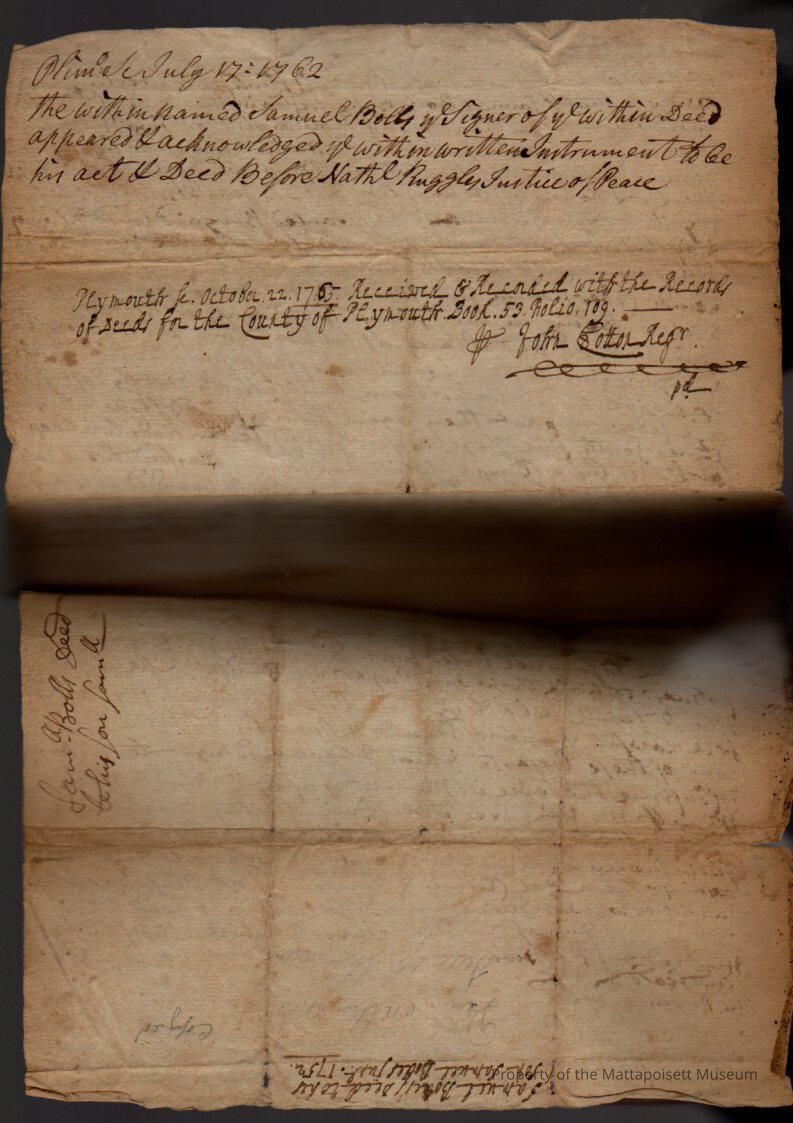 Plimo sc July 17: 1762
the within named Samuel Bolls ye Signer of ye within Deed
appeared & acknowledged ye within written Instrument to be
his act & Deed Before Nathl Ruggles Justice of Peace
Plymouth sc. October. 22. 1765. Received & Recorded with the Records
of Deeds for the County of Plymouth. Book. 53. Folio. 109.
John Cotton Regr.
pd
Saml Bolls Deed
to his son Samll
Copyed
Samuel Bolles Deed to his
Son Samuel Bolles Junr. 1752.
Property of the Mattapoisett Museum